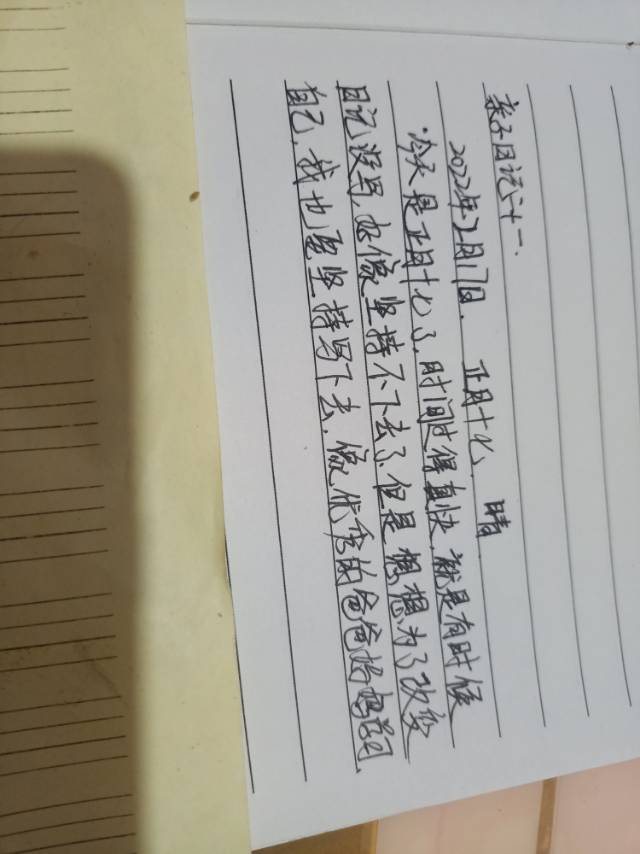 亲子日记六十一.
2022年2月17日、 正月十七、 晴
今天是正月十七了,时间过得真快,就是有时候
日记没写,好像坚持不下去了,但是想想为了改变
自己,我也要坚持写下去,做优秀的爸爸妈妈